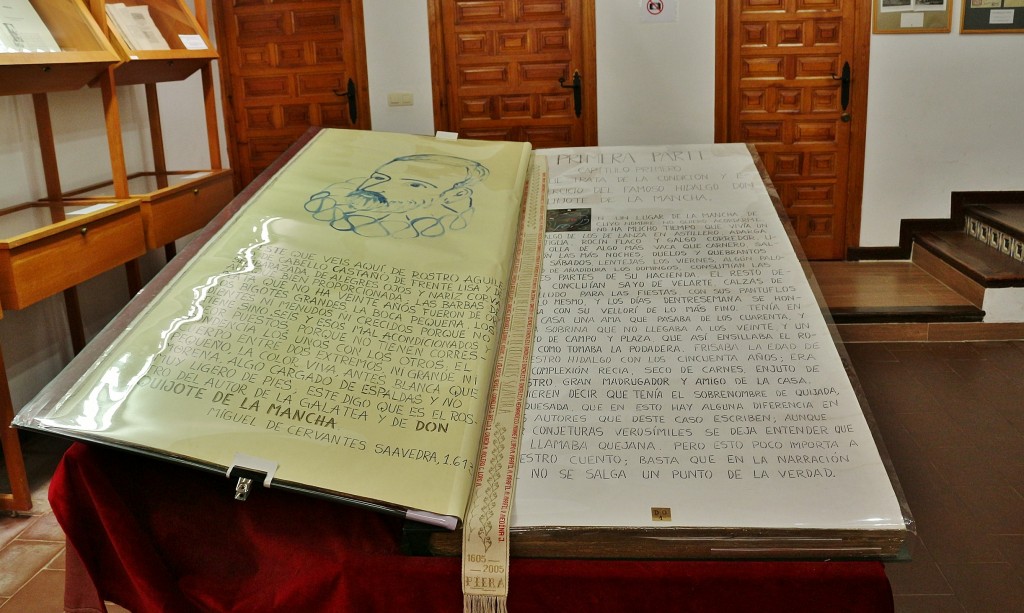 ESTE QUE VEIS AQUÍ, DE ROSTRO AGUIL
CABELLO CASTAÑO, DE FRENTE LISA
Y NARIZ CORVA
PROPORCIONADA, LAS BARBAS DE
QUE NO HA VEINTE AÑOS FUERON DE O
BIGOTES GRANDES, LA BOCA PEQUEÑA, LOS
MENUDOS NI CRECIDOS, PORQUE NO
SINO SEIS, Y ESOS MAL ACONDICIONADOS Y
PUESTOS, PORQUE NO TIENEN CORRES-
UNOS CON LOS OTROS, EL
ENTRE DOS EXTREMOS, NI GRANDE NI
PEQUEÑO, LA COLOR VIVA, ANTES BLANCA QUE
MORENA, ALGO CARGADO DE ESPALDAS Y NO
MUY LIGERO DE PIES. ESTE DIGO QUE ES EL ROS-
TRO DEL AUTOR DE LA GALATEA Y DE DON
QUIJOTE DE LA MANCHA
MIGUEL DE CERVANTES SAAVEDRA, 1.61
1605
2005
PIERA
PRIMERA PARTE
CAPÍTULO PRIMERO
QUE TRATA DE LA CONDICIÓN Y E
ERCICIO DEL FAMOSO HIDALGO DON
QUIJOTE DE LA MANCHA.
N UN LUGAR DE LA MANCHA DE
CUYO NOMBRE NO QUIERO ACORDARME,
NO HA MUCHO TIEMPO QUE VIVÍA UN
ALGO DE LOS DE LANZA EN ASTILLERO, ADARGA
TIGUA, ROCÍN FLACO Y GALGO CORREDOR. U-
OLLA DE ALGO MÁS VACA QUE CARNERO, SAL-
ÓN LAS MÁS NOCHES, DUELOS Y QUEBRANTOS
SÁBADOS, LENTEJAS LOS VIERNES, ALGÚN PALO-
DE AÑADIDURA LOS DOMINGOS, CONSUMÍAN LAS
ES PARTES DE SU HACIENDA. EL RESTO DE-
CONCLUÍAN SAYO DE VELARTE, CALZAS DE
LUDO PARA LAS FIESTAS CON SUS PANTUFLOS
LO MESMO, Y LOS DÍAS DENTRESEMANA SE HON-
CON SU VELLORÍ DE LO MÁS FINO. TENÍA EN
CASA UNA AMA QUE PASABA DE LOS CUARENTA, Y
SOBRINA QUE NO LLEGABA A LOS VEINTE Y UN
O DE CAMPO Y PLAZA QUE ASÍ ENSILLABA EL RO-
COMO TOMABA LA PODADERA. FRISABA LA EDAD DE
ESTRO HIDALGO CON LOS CINCUENTA AÑOS; ERA
COMPLEXIÓN RECIA, SECO DE CARNES, ENJUTO DE
STRO GRAN MADRUGADOR Y AMIGO DE LA CASA.
IEREN DECIR QUE TENÍA EL SOBRENOMBRE DE QUIJADA,
QUESADA, QUE EN ESTO HAY ALGUNA DIFERENCIA EN
AUTORES QUE DESTE CASO ESCRIBEN; AUNQUE
CONJETURAS VEROSÍMILES SE DEJA ENTENDER QUE
LLAMABA QUEJANA. PERO ESTO POCO IMPORTA A
ESTRO CUENTO; BASTA QUE EN LA NARRACIÓN
NO SE SALGA UN PUNTO DE LA VERDAD.